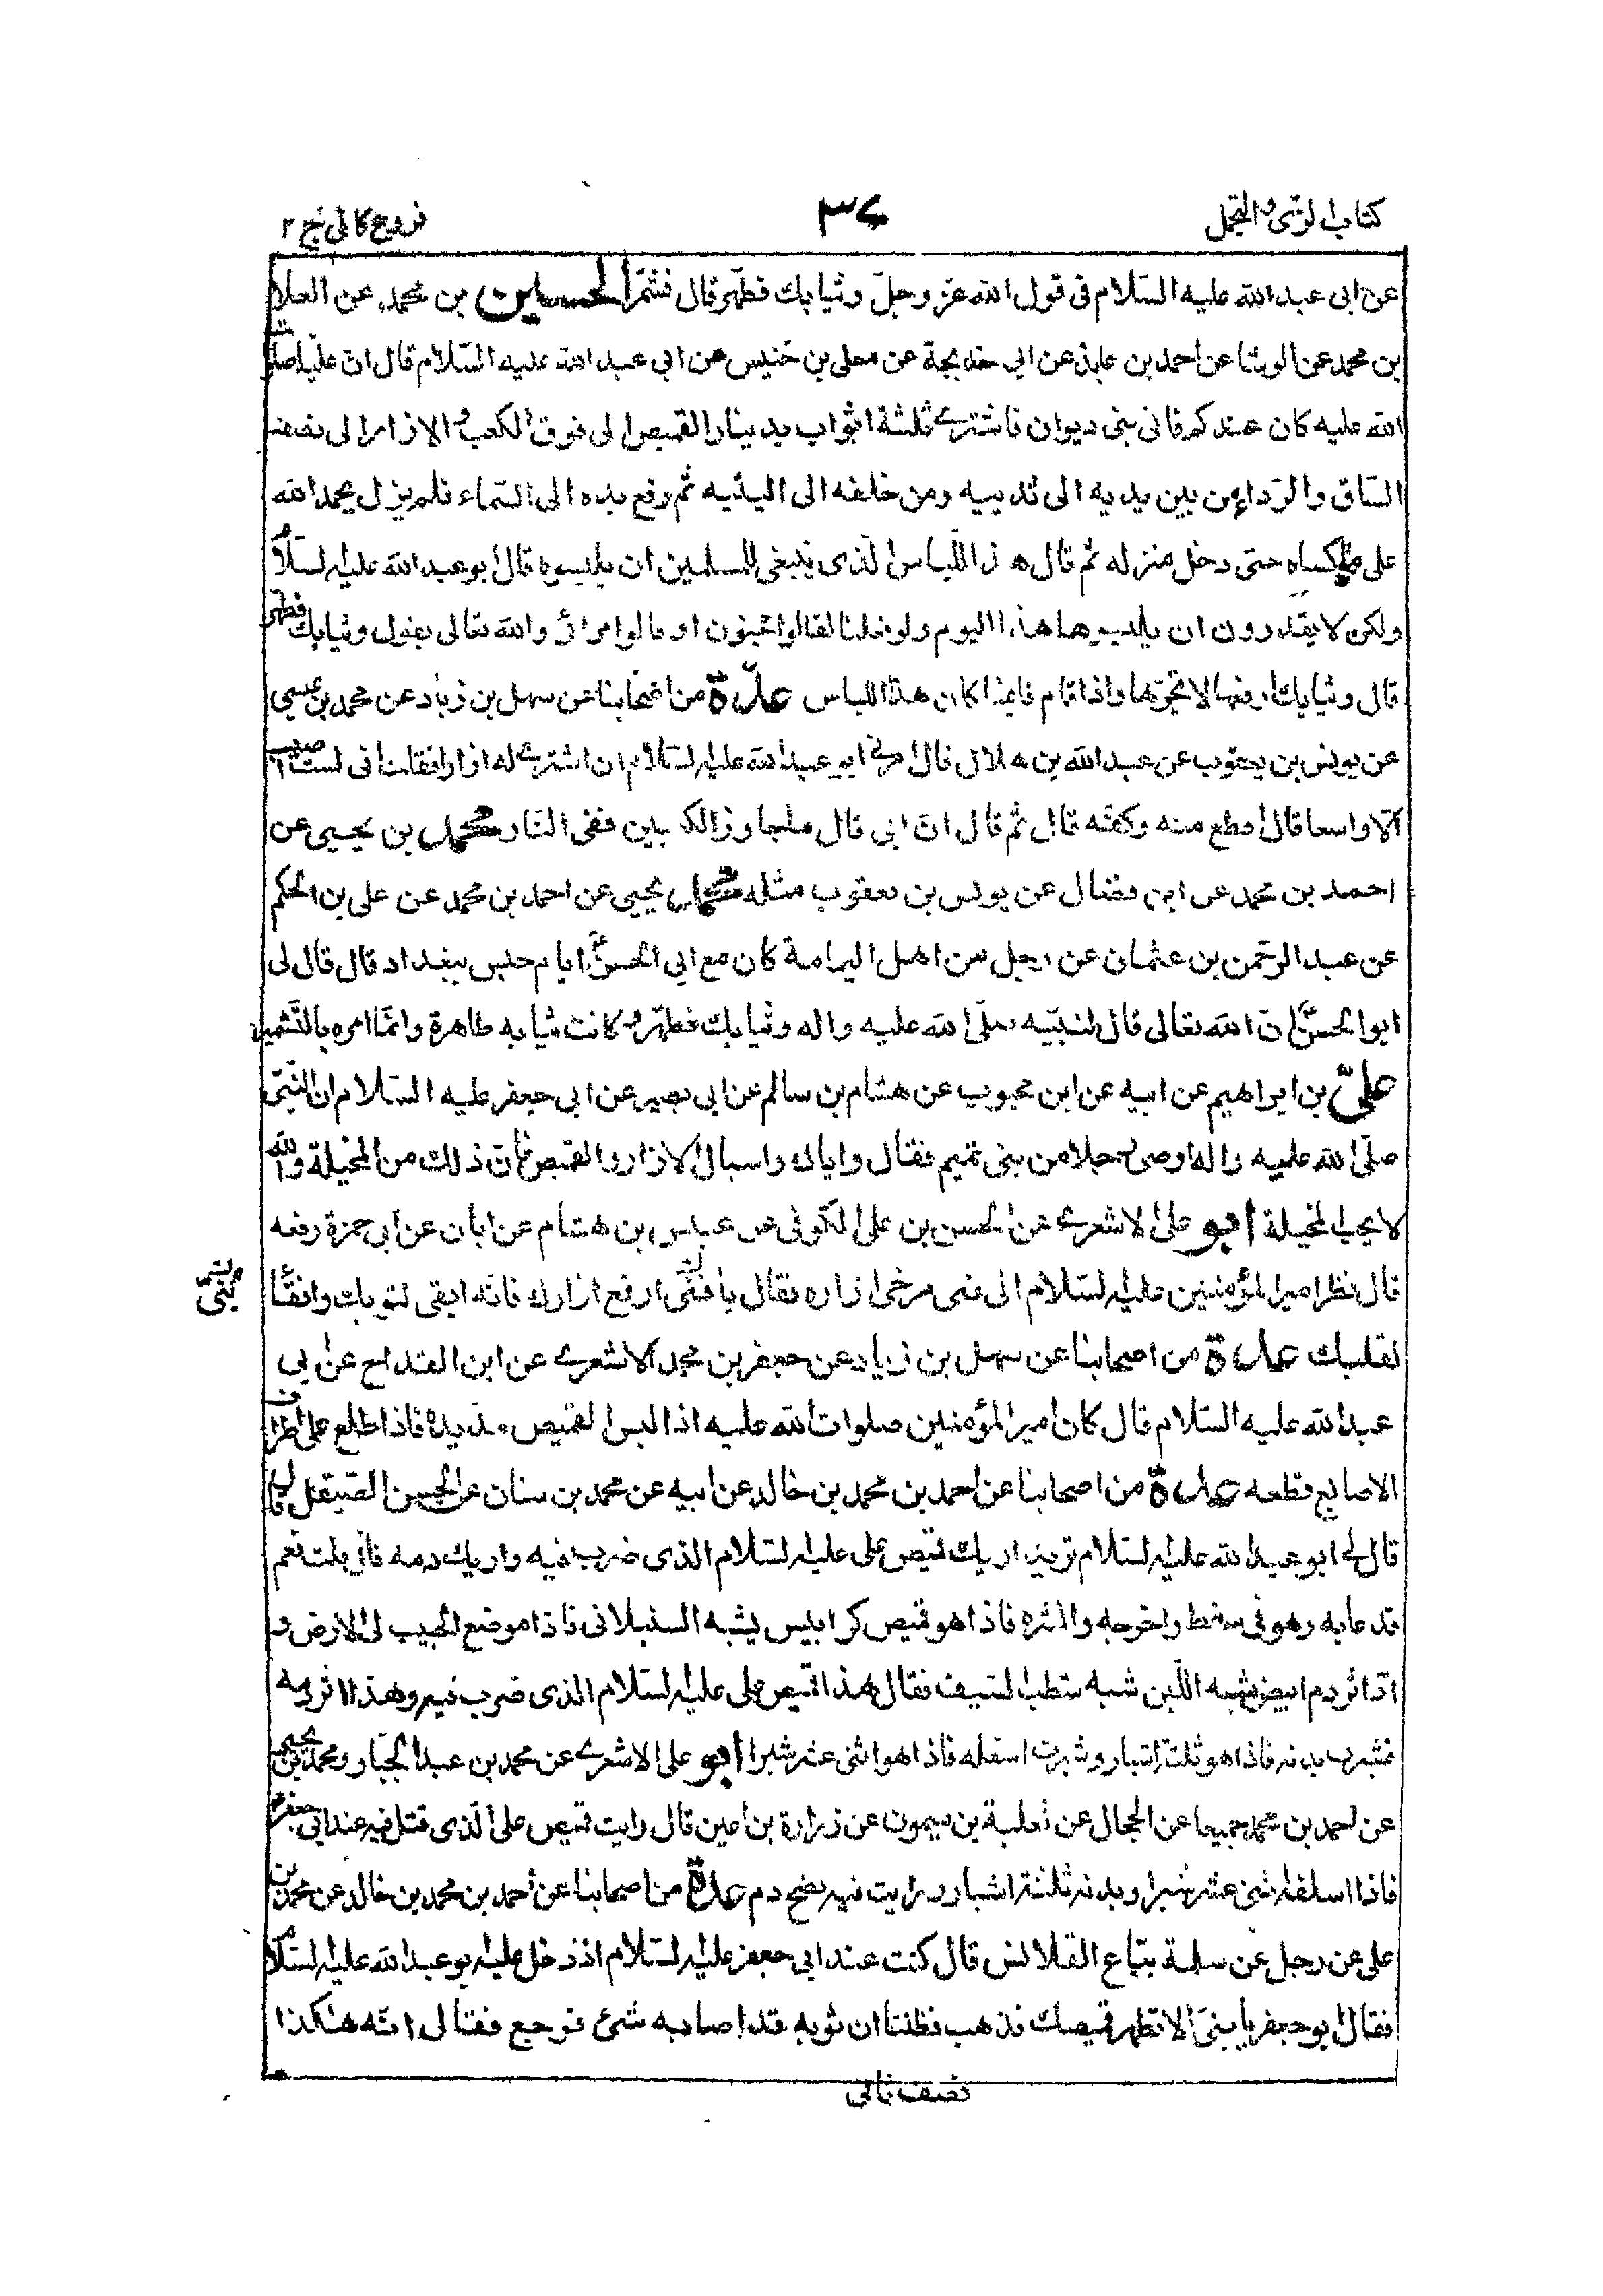 كتاب الزى والتجمل
٣٤
فروع كافى ج ٢
عن ابى عبد الله عليه السّلام فى قول الله عزّ وجلّ وثيابك فطهّر قال فشمّر الحسين بن محمد عن المعلا
بن محمد عن الوشا عن احمد بن عايذ عن ابي خديجة عن معلى بن خنيس عن ابي عبد الله عليه السّلام قال انّ عليّا صلوات
الله عليه كان عندكم فاتى بنى ديوان فاشترى ثلثة اثواب بدينار القميص الى فوق الكعب و الازار الى نصف
السّاق والرّداء من بين يديه الى ثدييه ومن خلفه الى اليتيه ثم رفع يده الى السّماء فلم يزل يحمد الله
على ما كساه حتى دخل منزله ثم قال هذا اللّباس الّذى ينبغى للمسلمين ان يلبسوه قال ابو عبد الله عليه السّلام
ولكن لا يقدرون ان يلبسوا هذا اليوم ولو فعلنا لقالوا مجنون او قالوا مراىٍ والله تعالى يقول وثيابك فطهر
قال وثيابك ارفعها لا تجرّها واذا قام قايمنا كان هذا اللباس عدّة من اصحابنا عن سهل بن زياد عن محمد بن عيسى
عن يونس بن يعقوب عن عبد الله بن هلال قال امرنى ابو عبد الله عليه السّلام ان اشترى له ازارا فقلت انى لست اصيب
الّا واسعا قال اقطع منه وكفّه قال ثم قال انّ ابى قال ما جاوز الكعبين ففى النّار محمد بن يحيى عن
احمد بن محمد عن ابن فضال عن يونس بن يعقوب مثله محمد بن يحيى عن احمد بن محمد عن على بن الحكم
عن عبد الرّحمن بن عثمان عن رجل من اهل اليمامة كان مع ابي الحسنؑ ايام حبس ببغداد قال قال لى
ابو الحسنؑ انّ الله تعالى قال لنبيّه صلّى الله عليه واله وثيابك فطهّر و كانت ثيابه طاهرة وانّما امره بالتّشمير
علىّ بن ابراهيم عن ابيه عن ابن محبوب عن هشام بن سالم عن ابى بصير عن ابى جعفر عليه السّلام ان النّبىّ
صلّى الله عليه واله اوصى رجلا من بنى تميم فقال واياك واسبال الازار والقميص فانّ ذلك من المخيلة والله
لا يحب المخيلة ابو على الاشعرى عن الحسن بن على الكوفى عن عبيس بن هشام عن ابان عن ابى حمزة رفعه
قال نظر امير المؤمنين عليه السّلام الى فتى مرخى ازاره فقال يا فتى ارفع ازارك فانّه ابقى لثوبك وانقا
بنىّ
لقلبك عدة من اصحابنا عن سهل بن زياد عن جعفر بن محمد الاشعرى عن ابن القداح عن ابى
عبد الله عليه السّلام قال كان امير المؤمنين صلوات الله عليه اذا لبس القميص مدّ يده فاذا طلع على اطراف
الاصابع قطعه عدة من اصحابنا عن احمد بن محمد بن خالد عن ابيه عن محمد بن سنان عن الحسن الصّيقل قال
قال لى ابو عبد الله عليه السّلام تريد اريك قميص على عليه السّلام الذى ضرب فيه واريك دمه قال قلت نعم
فدعا به وهو فى سفط فاخرجه وانشره فاذا هو قميص كرابيس يشبه السنبلانى فاذا موضع الجيب الى الارض و
اذا اثر دم ابيض شبه اللّبن شبه شطب السّيف فقال هذا قميص على عليه السّلام الذى ضرب فيه وهذا اثر دمه
فشبرت بدنه فاذا هو ثلثة اشبار وشبرت اسفله فاذا هو اثنى عشر شبرا ابو على الاشعرى عن محمد بن عبد الجبّار ومحمد بن يحيى
عن احمد بن محمد جميعا عن الحجال عن ثعلبة بن ميمون عن زرارة بن اعين قال رايت قميص علىؑ الّذى قتل فيه عند ابى جعفرؑ
فاذا اسفله اثنى عشر شبرا وبدنه ثلثة اشبار ورايت فيه نضح دم عدة من اصحابنا عن احمد بن محمد بن خالد عن محمد بن
على عن رجل عن سلمة بيّاع القلانس قال كنت عند ابى جعفر عليه السّلام اذ دخل عليه ابو عبد الله عليه السّلام
فقال ابو جعفر يا بنىّ الا تطهر قميصك فذهب فظننا ان ثوبه قد اصابه شئ فرجع فقال انّه هكذا
نصف ثانى